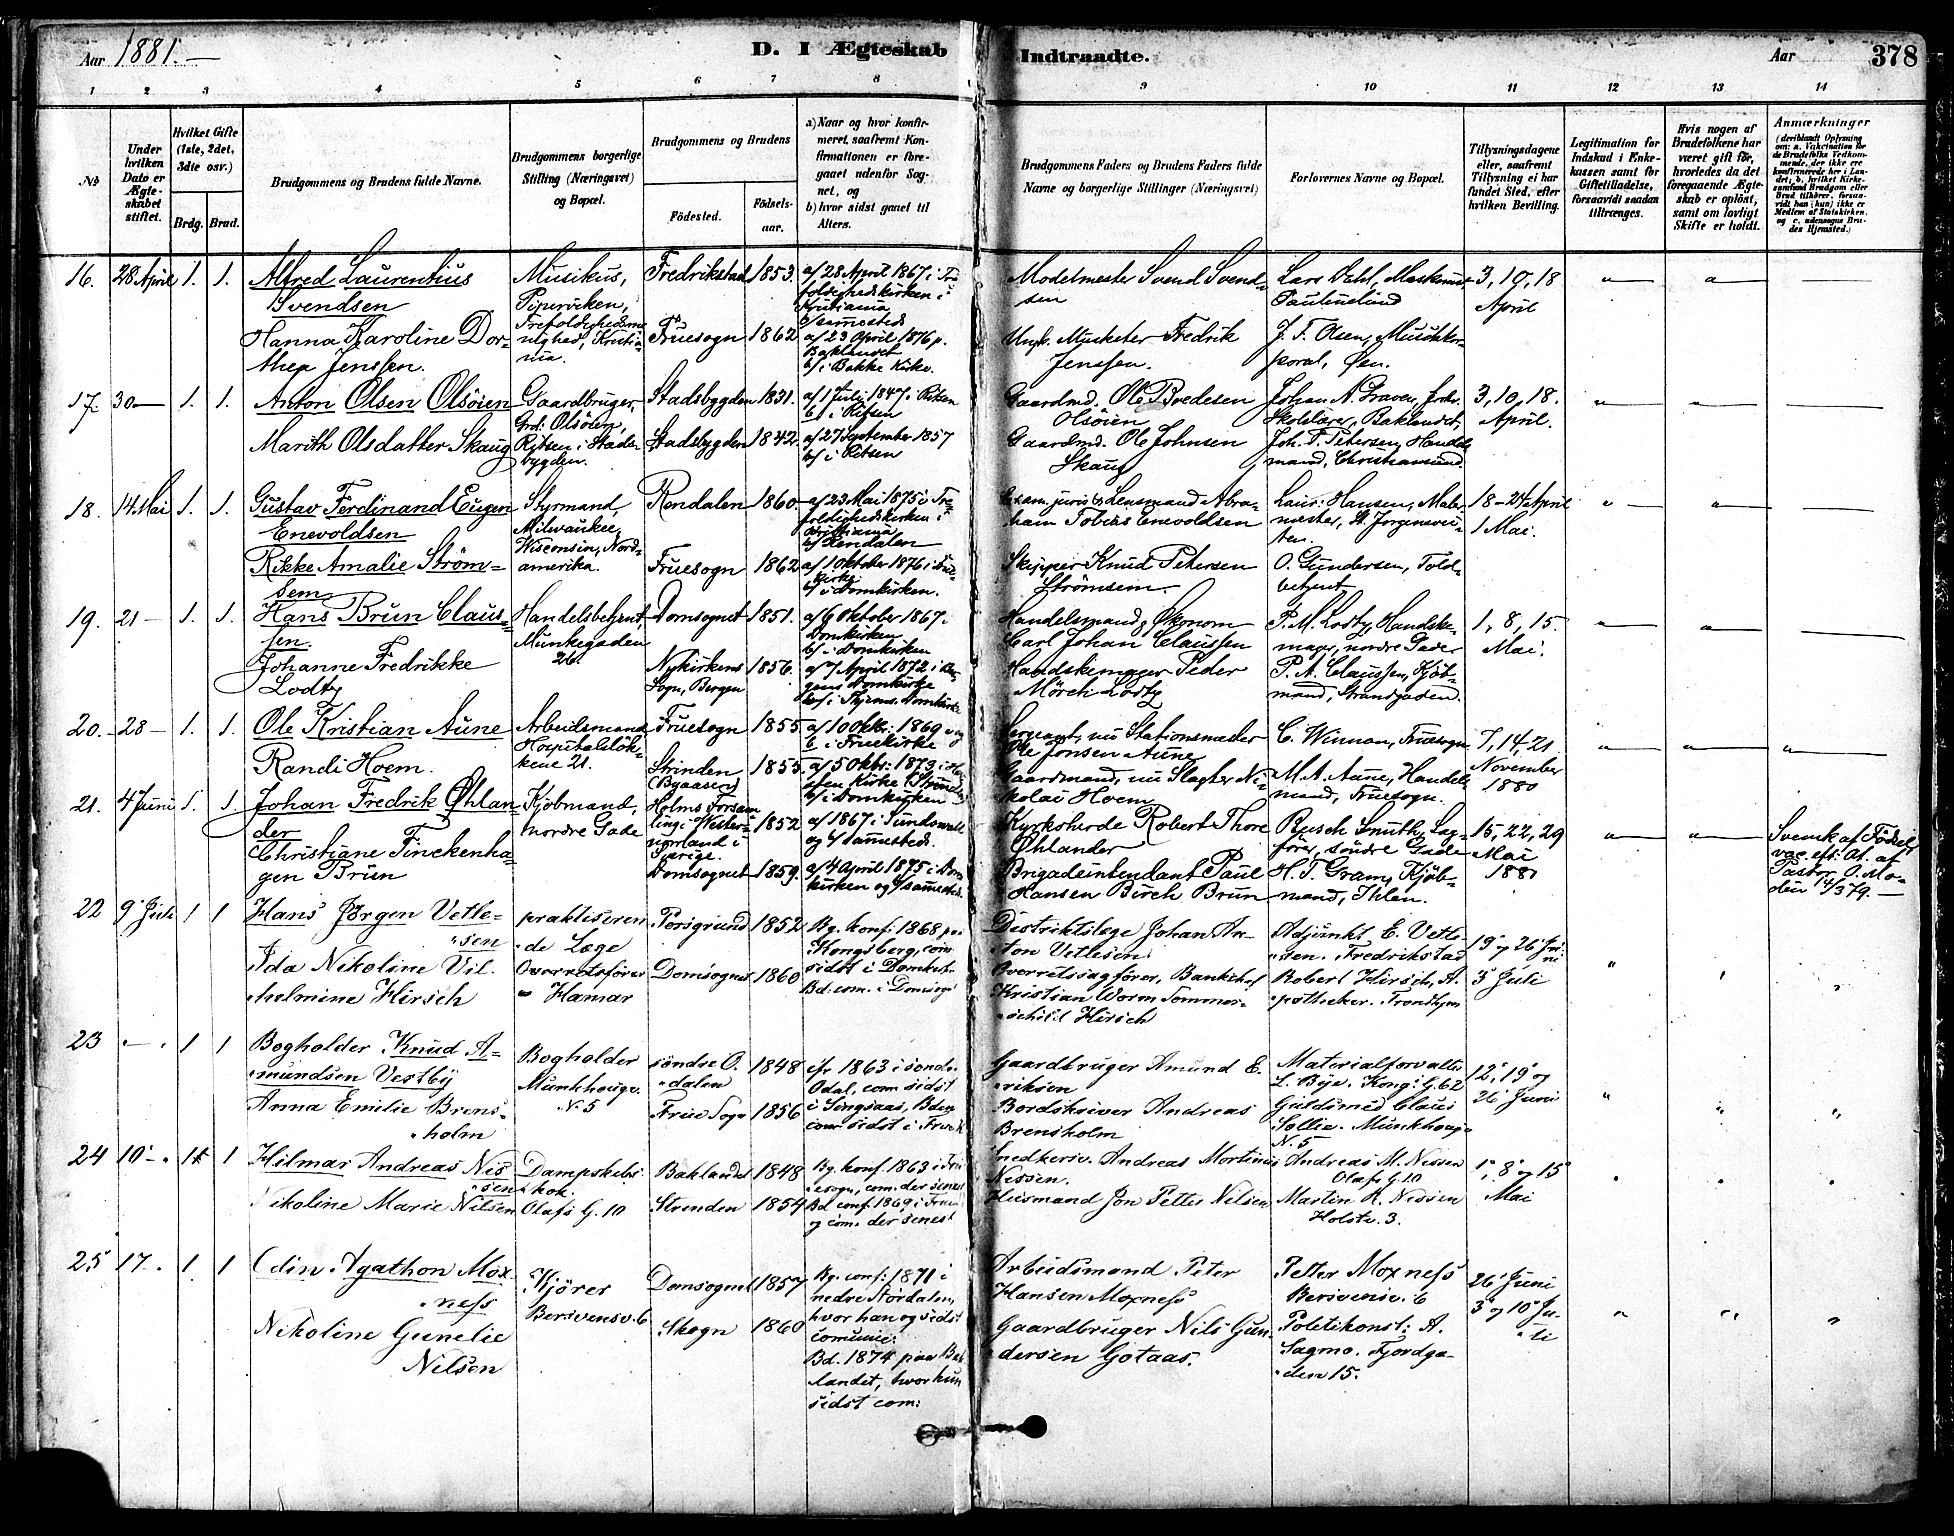 Aar 1881.—
D. I Ægteskab
Indtraadte.
Aar
378
1 2 3 4 5 6 7 8 9 10 11 12 13 14
№
Under hvilken Dato er Ægteskabet stiftet.
Hvilket Gifte (1ste, 2det, 3die osv.)
Brdg. Brud.
Brudgommens og Brudens fulde Navne.
Brudgommens borgerlige Stilling (Næringsvei) og Bopæl.
Brudgommens og Brudens
Fødested.
Fødselsaar.
a) Naar og hvor konfirmeret, saafremt Konfirmationen er foregaaet udenfor Sognet, og
b) hvor sidst gaaet til Alters.
Brudgommens Faders og Brudens Faders fulde Navne og borgerlige Stillinger (Næringsvei)
Forlovernes Navne og Bopæl.
Tillysningsdagene eller, saafremt Tillysning ei har fundet Sted, efter hvilken Bevilling.
Legitimation for Indskud i Enkekassen samt for Giftetilladelse, forsaavidt saadan tiltrænges.
Hvis nogen af Brudefolkene har været gift før, hvorledes da det foregaaende Ægteskab er opløst, samt om lovligt Skifte er holdt.
Anmærkninger
(deriblandt Oplysning om: a. Vakcination for de Brudefolks Vedkommende, der ikke ere konfirmerede her i Landet; b. hvilket Kirkesamfund Brudgom eller Brud tilhører, forsaavidt han (hun) ikke er Medlem af Statskirken, og c. udensogns Brudes Hjemsted.)
16. 28 April 1. 1. Alfred Laurentius
Svendsen
Hanna Karoline Dor-
thea Jenssen.
Musikus,
Pipervíken,
Trefoldigheds
Kristia-
nia.
Fredrikstad 1853.
Fruesogn 1862
a/ 28. April 1867 i Tre-
foldighedskirken i
Kristiania
b/ sammesteds
a/ 23 April 1876 p.
Baklandet
b/ i Bakke Kirke.
Modelmester Svend Svend-
sen
Musketer Fredrik
Jenssen.
Lars Dahl,
Paulinelund
J. F. Olsen,
poral, Øen.
3, 10, 18
April
17. 30— 1. 1. Anton Olsen Olsöien
Marith Olsdatter Skaug
Gaardbruger,
Grd: Olsöien,
Ritsen i Stads-
bygden.
Stadsbygden 1831.
Stadsbygden 1842.
a/ 1 Juli 1847 i Ritsen
b/ i Ritsen
a/ 27 September 1857
b/ i Ritsen
Gaardmd. Ole Bredesen
Olsöien
Gaardmd. Ole Johnsen
Skaug
Johan N. Graven, forh.
Skolelærer, Baklandet,
Joh. F. Petersen, Handels-
mand, Christiansund.
3, 10, 18.
April.
18. 14. Mai 1. 1. Gustav Ferdinand Eugen
Enevoldsen
Rikke Amalie Ström-
sem
Styrmand,
Milwaukee,
Wisconsin, Nord-
amerika.
Rendalen 1860
Fruesogn 1862
a/ 23 Mai 1875 i Tre-
foldighedskirken i
Kristiania
b/ Rendalen
a/ 1 Oktober 1876 i Frue-
kirke
b/ i Domkirken.
Exam. juris & Lensmand Abra-
ham Tobias Enevoldsen
Skipper Knud Petersen
Strömsem.
Laur: Hansen, Maler-
mester, St. Jørgensvei-
ten.
O. Gundersen, Told-
betjent
18–24 April
1 Mai.
19. 21 — 1. 1. Hans Brun Claus-
sen.
Johanne Fredrikke
Lodtz
Handelsbetjent,
Munkegaden
26.
Domsognet 1851.
Nykirkens
Sogn, Bergen 1856.
a/ 6 Oktober 1867 i
Domkirken
b/ i Domkirken
a/ 7 April 1872 i Ber-
gens Domkirke
b/ i Thjems Domkirke
Handelsmand, Økonom
Carl Johan Claussen
Handskemager Peder
Mörch Lodtz
P. M. Lodtz, Handske-
mager, nordre Gade
P. A. Claussen, Kjöb-
mand, Strandgaden.
1, 8, 15.
Mai.
20. 28 — 1. 1. Ole Kristian Aune
Randi Hoem.
Arbeidsmand
Hospitalslök-
kene 21.
Fruesogn 1855.
Strinden
(Byaasen) 1855.
a/ 10 Oktr: 1869 og
b. i Fruekirke
a/ 5 Oktbr: 1873 i Ho-
sten Kirke (Strinden)
b/ i Domkirken
Servant, nu Stationsmester
Ole Jonsen Aune
Gaardmand, nu Slagter Ni-
kolai Hoem
C. Winnan, Fruesogn
M. A. Aune, Handels-
mand, Fruesogn.
7, 14, 21.
November
1880
21. 4 Juni 1. 1. Johan Fredrik Øhlan-
der
Christiane Finckenha-
gen Brun
Kjöbmand,
nordre Gade
Holms Forsam-
ling i Wester-
norrland i
Sverige. 1852
Domsognet 1859.
a/ 1867 i Sundswall
og b/ sammesteds.
a/ 4 April 1875 i Dom-
kirken og b/ sammesteds
Kyrkoherde Robert Thore
Øhlander
Brigadeintendant Paul
Hansen Birch Brun
Rusch Smith, Sag-
förer, söndre Gade
H. T. Gram, Kjöb-
mand, Ihlen.
15, 22, 29
Mai
1881
Svensk af Födsel,
vac. eft: At. af
Pastor O. Mo-
din 14/3 79. —
22 9' Juli 1 1 Hans Jørgen Vetle-
sen
Ida Nikoline Vil-
helmine Hirsch
praktiseren-
de Læge
Overretsfører
Hamar
Porsgrund 1852
Domsognet 1860
Bg. konf: 1868 paa
Kongsberg, com.
sidst i Domkirk.
Bd. com. i Domsogn
Distriktslæge Johan An-
ton Vetlesen
Overretssagfører, Bankchef
Kristian Worm Sommer-
schild Hirsch
Adjunkt E. Vetle-
sen. Fredrikstad
Robert Hirsch, A-
potheker. Trondhjem
19' og 26' Ju-
ni
3' Juli
23 1 1 Bogholder Knud A-
mundsen Vestby
Anna Emilie Brens-
holm
Bogholder
Munkhauge.
N. 5
søndre O-
dalen 1848
Frue Sogn 1856
Kfr 1863 i søndr.
Odal, com. sidst
i Singsaas, Bden
com. sidst i Frue K
Gaardbruger Amund E-
riksen
Bordskriver Andreas
Brensholm
Materialforvalter
L. Bye. Kong: G. 62
Guldsmed Claus
Sollie. Munkhaug
N. 5
12', 19' og
26' Juni
24 10'- 1 1 Hilmar Andreas Nis-
sen
Nikoline Marie Nilsen
Dampskebs-
kok.
Olafs G. 10
Baklandet 1848
Strinden 1854
Bg. konf. 1863 i Fru-
esogn, com. der senest
Bd conf. 1869 i Frue
og com. der senest
Snedkersv. Andreas Mortinus
Nissen.
Husmand Jon Petter Nilsen
Andreas M. Nissen
Olafs G. 10
Martin R. Nissen
Holstv. 3.
1', 8' og 15'
Mai
25 17. 1 1 Odin Agathon Mox-
ness
Nikoline Gunelie
Nilsen
Kjører
Bersvensv. 6
Domsognet 1857
Skogn 1860
Bg. conf: 1871 i
nedre Størdalen,
hvor han og sidst
comunic.
Bd. 1874 paa Bak-
landet, hvor hun
sidst com:
Arbeidsmand Peter
Hansen Moxness
Gaardbruger Nils Gun-
dersen Gotaas.
Petter Moxness
Bersvensv. 6
Politikonst: A.
Sagmo. Fjordga-
den 15.
26' Juni
3' og 10' Ju-
li